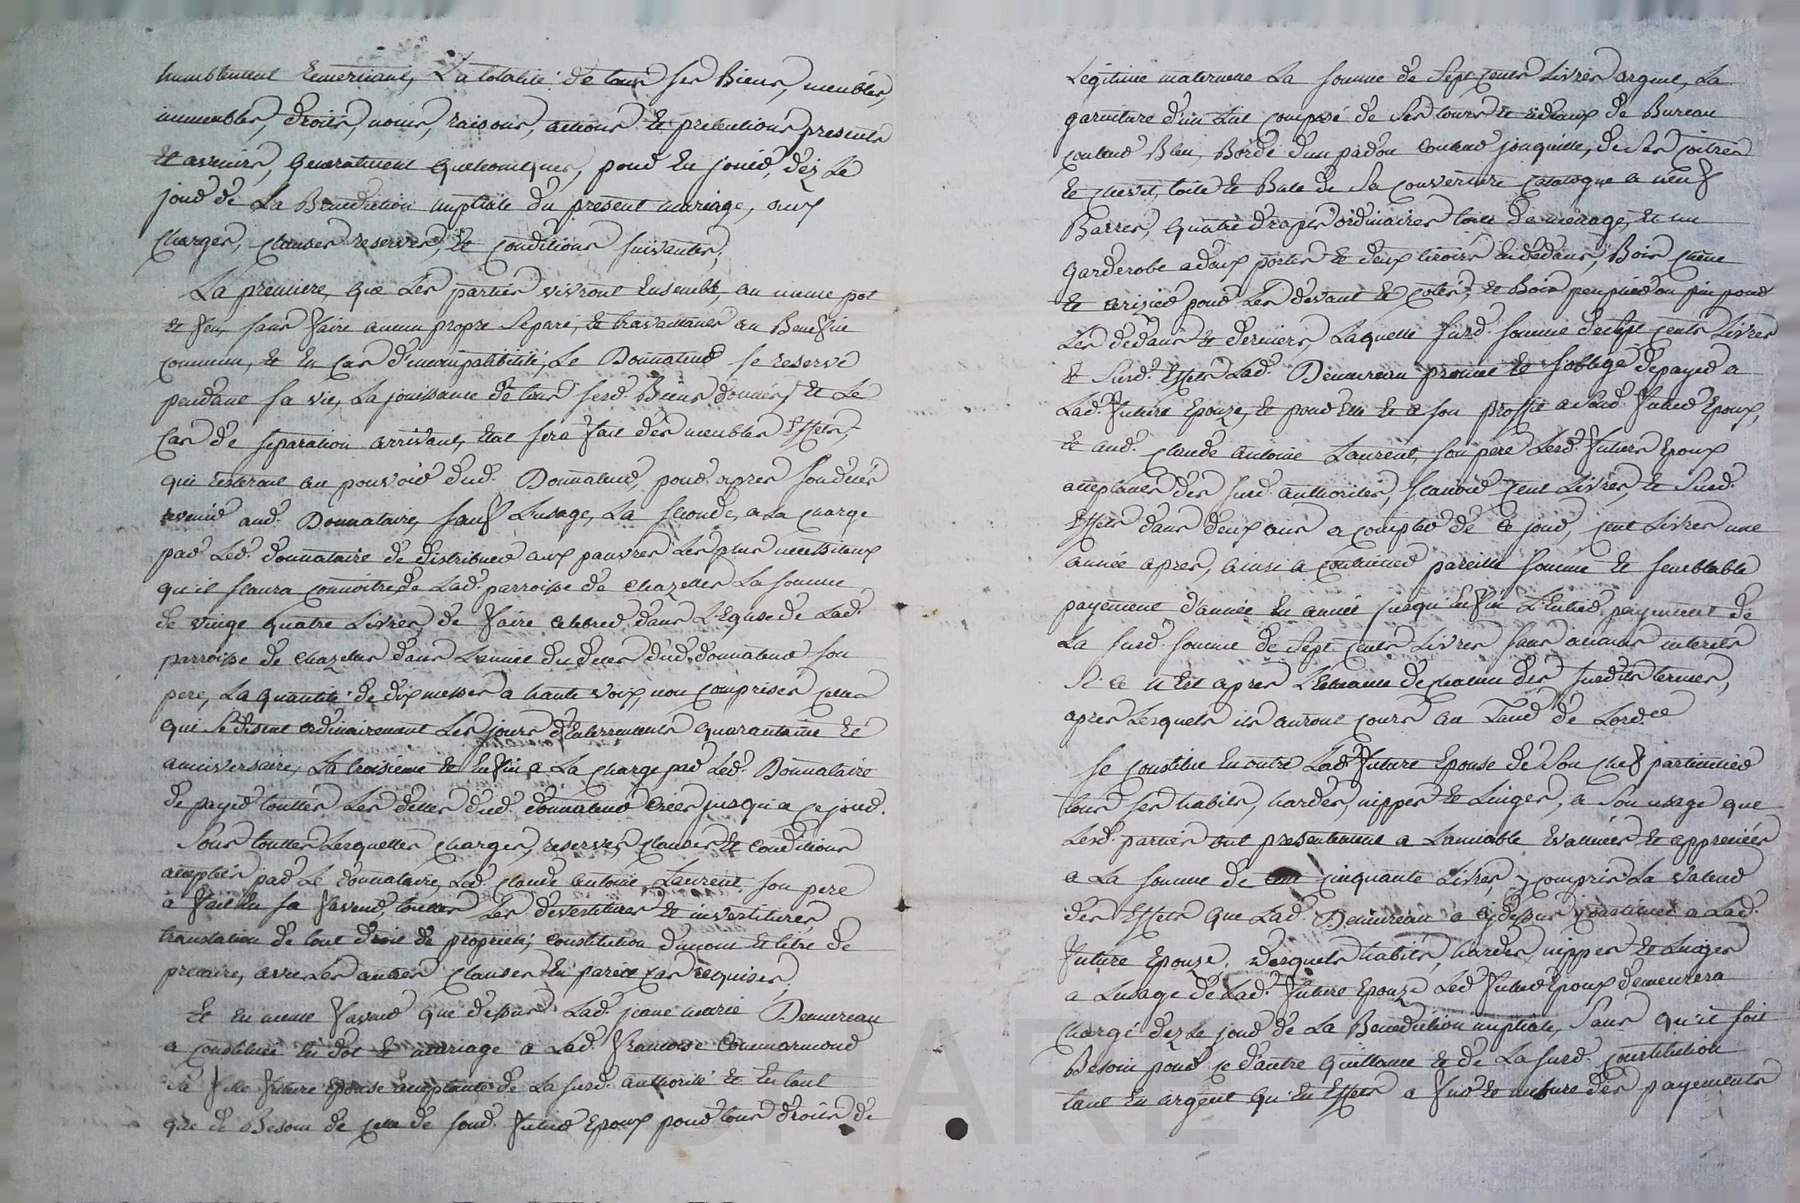 humblement remerciant, La totalité de tous ses Biens, meubles,
immeubles, droits, noms, raisons, actions et prétentions presents
et avenirs, generalement quelconques, pour en jouir, dez Le
jour de La Benediction nuptiale du present mariage, aux
charges, clauses reserves, et conditions suivantes,
La premiere, que Les parties vivront Ensemble, au meme pot
et feu, sans faire aucun propre Separé, et travaillants au Benefice
commun, et En Cas d'incompatibilité, Le Donnateur se reserve
pendant sa vie, La jouissance de tous sesd. Biens donnés, et Le
Cas de separation arrivant, Etat sera fait des meubles Effets,
qui resteront au pouvoir dud. Donnateur, pour apres son deces
revenir aud. Donnataire, sauf L'usage, La seconde, a La charge
par Led. donnataire de distribuer aux pauvres Les plus necessiteux
qu'il scaura connoitre de Lad. parroisse de chazelles La somme
de vingt quatre Livres, de faire celebrer dans L'Eglise de Lad.
parroisse de chazelles dans L'année du deces dud. donnateur son
pere, La quantité de dix messes a haute voix, non comprises celles
qui Se disent ordinairement Les jours d'Enterrements quarantaine et
anniversaire, La troisieme et Enfin a La charge par Led. Donnataire
de payer touttes Les dettes dud. donnateur crées jusqu'a ce jour.
Sous touttes Lesquelles charges, reserves, clauses et conditions
acceptées par Le donnataire, Led. claude antoine Laurent, son pere
a fait En sa faveur, touttes Les devestitures et investitures
translation de tout droit de propriété, constitution d'un nom et titre de
precaire, avec Les autres clauses En pareil cas requises,
Et En meme faveur que dessus Lad. jeane marie Demureau
a constitué En dot et mariage a Lad. francoise Commarmond
sa fille future Epouse acceptante de La susd. authorité et En tant
que de Besoin de celle de sond. futur Epoux pour tous droits de
Legitime maternelle La somme de Sept cents Livres argent, La
garniture d'un Lit composé de Ses tours et rideaux de Bureau
couleur Bleu, Bordé d'un padou couleur jonquille, de Ses coitres
et chevet, toile et Bale de Sa couverture Catalogne a neuf
Barres, quatre draps ordinaires toile de menage, et un
garderobe a deux portes et deux tiroirs En dedans, Bois chene
et cerizier pour Les devant et cotés, et Bois peuplier ou pin pour
Les dedans et derniers, Laquelle susd. somme de Sept cents Livres
et Susd. Effets Lad. Demureau promet et s'oblige de payer a
Lad. future Epouze, et pour Elle et a son proffit a sond. futur Epoux,
et aud. claude antoine Laurent, son pere Lesd. futurs Epoux
acceptants des susd. authorités, scavoir cent Livres, et Susd.
Effets dans deux ans a compter de ce jour, cent Livres une
année apres, ainsi a continuer pareille somme et semblable
payement d'année En année jusqu'En fin L'Entier payement de
La susd. somme de Sept cents Livres sans aucuns interets
Si ce n'est apres L'Echeance de chacun des susdits termes,
apres Lesquels ils auront cours au Taux de L'ord.ce
se constitue En outre Lad. future Epouse de Son chef particulier
tous ses habits, hardes, nippes et Linges, a Son usage que
Lesd. parties ont presentement a L'amiable Evalués et appreciés
a La somme de cinquante Livres, y compris La valeur
des Effets que Lad. Demureau a cy dessus constitués a Lad.
future Epouze, desquels habits, hardes, nippes et Linges
a L'usage de Lad. future Epouze Led. futur Epoux demeurera
chargé dez Le jour de La Benediction nuptiale, Sans qu'il soit
Besoin pour ce d'autre quittance et de La susd. constitution
tant En argent qu'En Effets a fur et mesure des payements